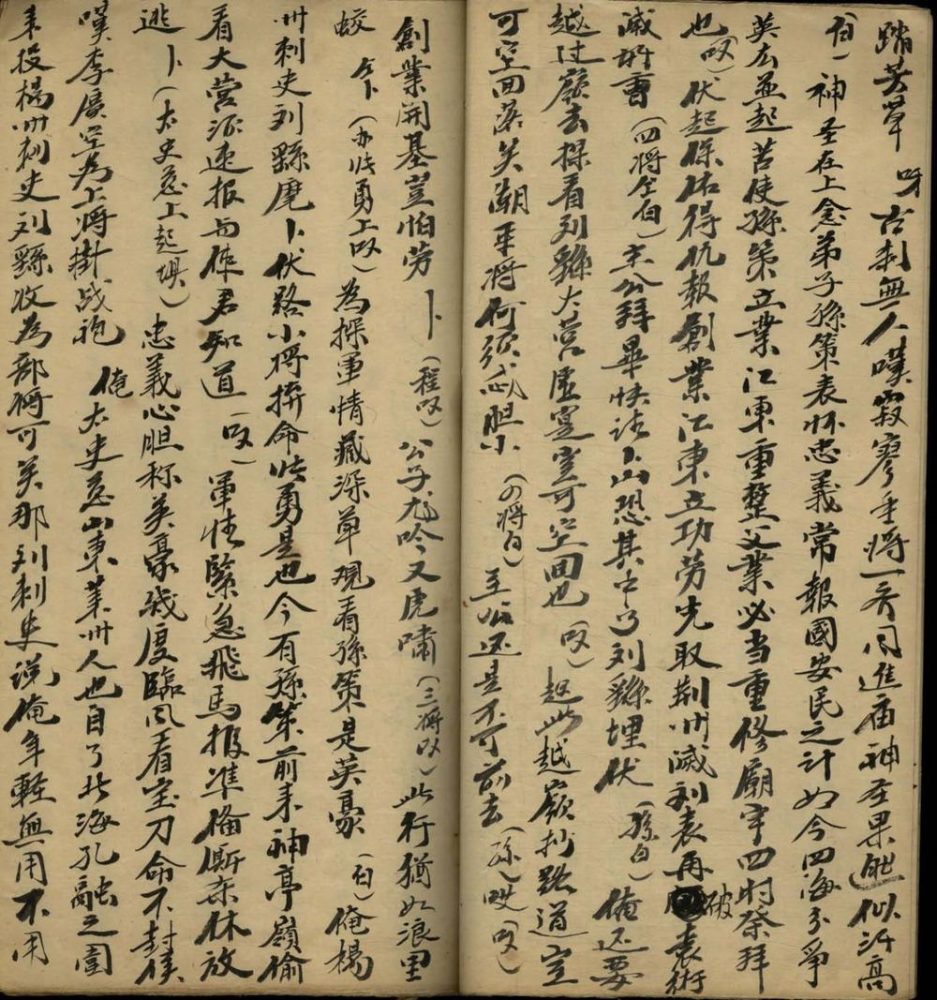 踏芳草 呀 古刹無人嘆寂寥 重将一齐同進庙神圣果能似沂高
(白) 神圣在上念弟子孫策表怀忠義常報國安民之計如今四海分爭
英広並起苦使孫策立業江東重整父業必当重修廟宇四时祭拜
也 (叹) 伏起保佑得仇報創業江東立功劳先取荆州滅刘表再破袁術
滅曹 (四将仝白) 主公拜畢快活下山恐其中了刘繇埋伏 (孫白) 俺还要
越过嶺去探看刘繇大营虚寔寔可空回也 (叹) 趂此越嶺抄路道豈
可空回落笑潮 眾将何須咁胆小 (四将白) 主公还是不可前去 (孫) 哎 (叹)
創業開基豈怕劳 卜 (程叹) 公子尨吟又虎嘯 (三将叹) 此行猶如浪里
蛟 仝卜 (小张勇上叹) 為探軍情藏深草 現看孫策是英豪 (白) 俺楊
州刺史刘繇麾下伏路小将拚命张勇是也今有孫策前来神亭嶺偷
看大营须速报与使君知道 (叹) 軍情緊急飛馬报準偹厮杀休放
逃 卜 (太史慈上起愼) 忠義心胆称英豪幾度臨风看宝刀命不封侯
嘆李廣空為上将掛战袍 俺太史慈山東莱州人也自了北海孔融之圍
来投楊州刺史刘繇收為部将可笑那刘刺史說俺年輕無用不用